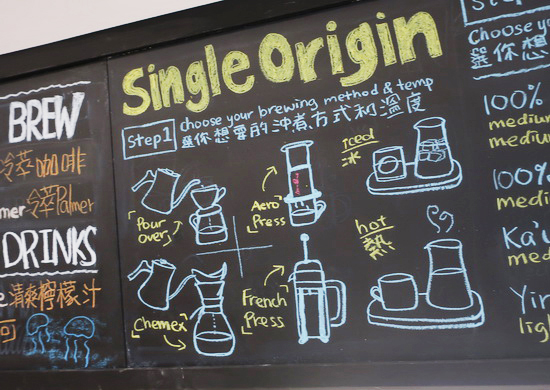 BREW
冷萃咖啡
冷萃Palmer
DRINKS
清爽檸檬汁
可
Single Origin
Step 1
choose your brewing method & temp
選你想要的沖煮方式和溫度
Pour over
Aero Press
iced
冰
Chemex
French Press
hot
熱
Step
Choose yo
選你想
100%
medium
medium
100%
medi
Ka'u
medi
Yir
light